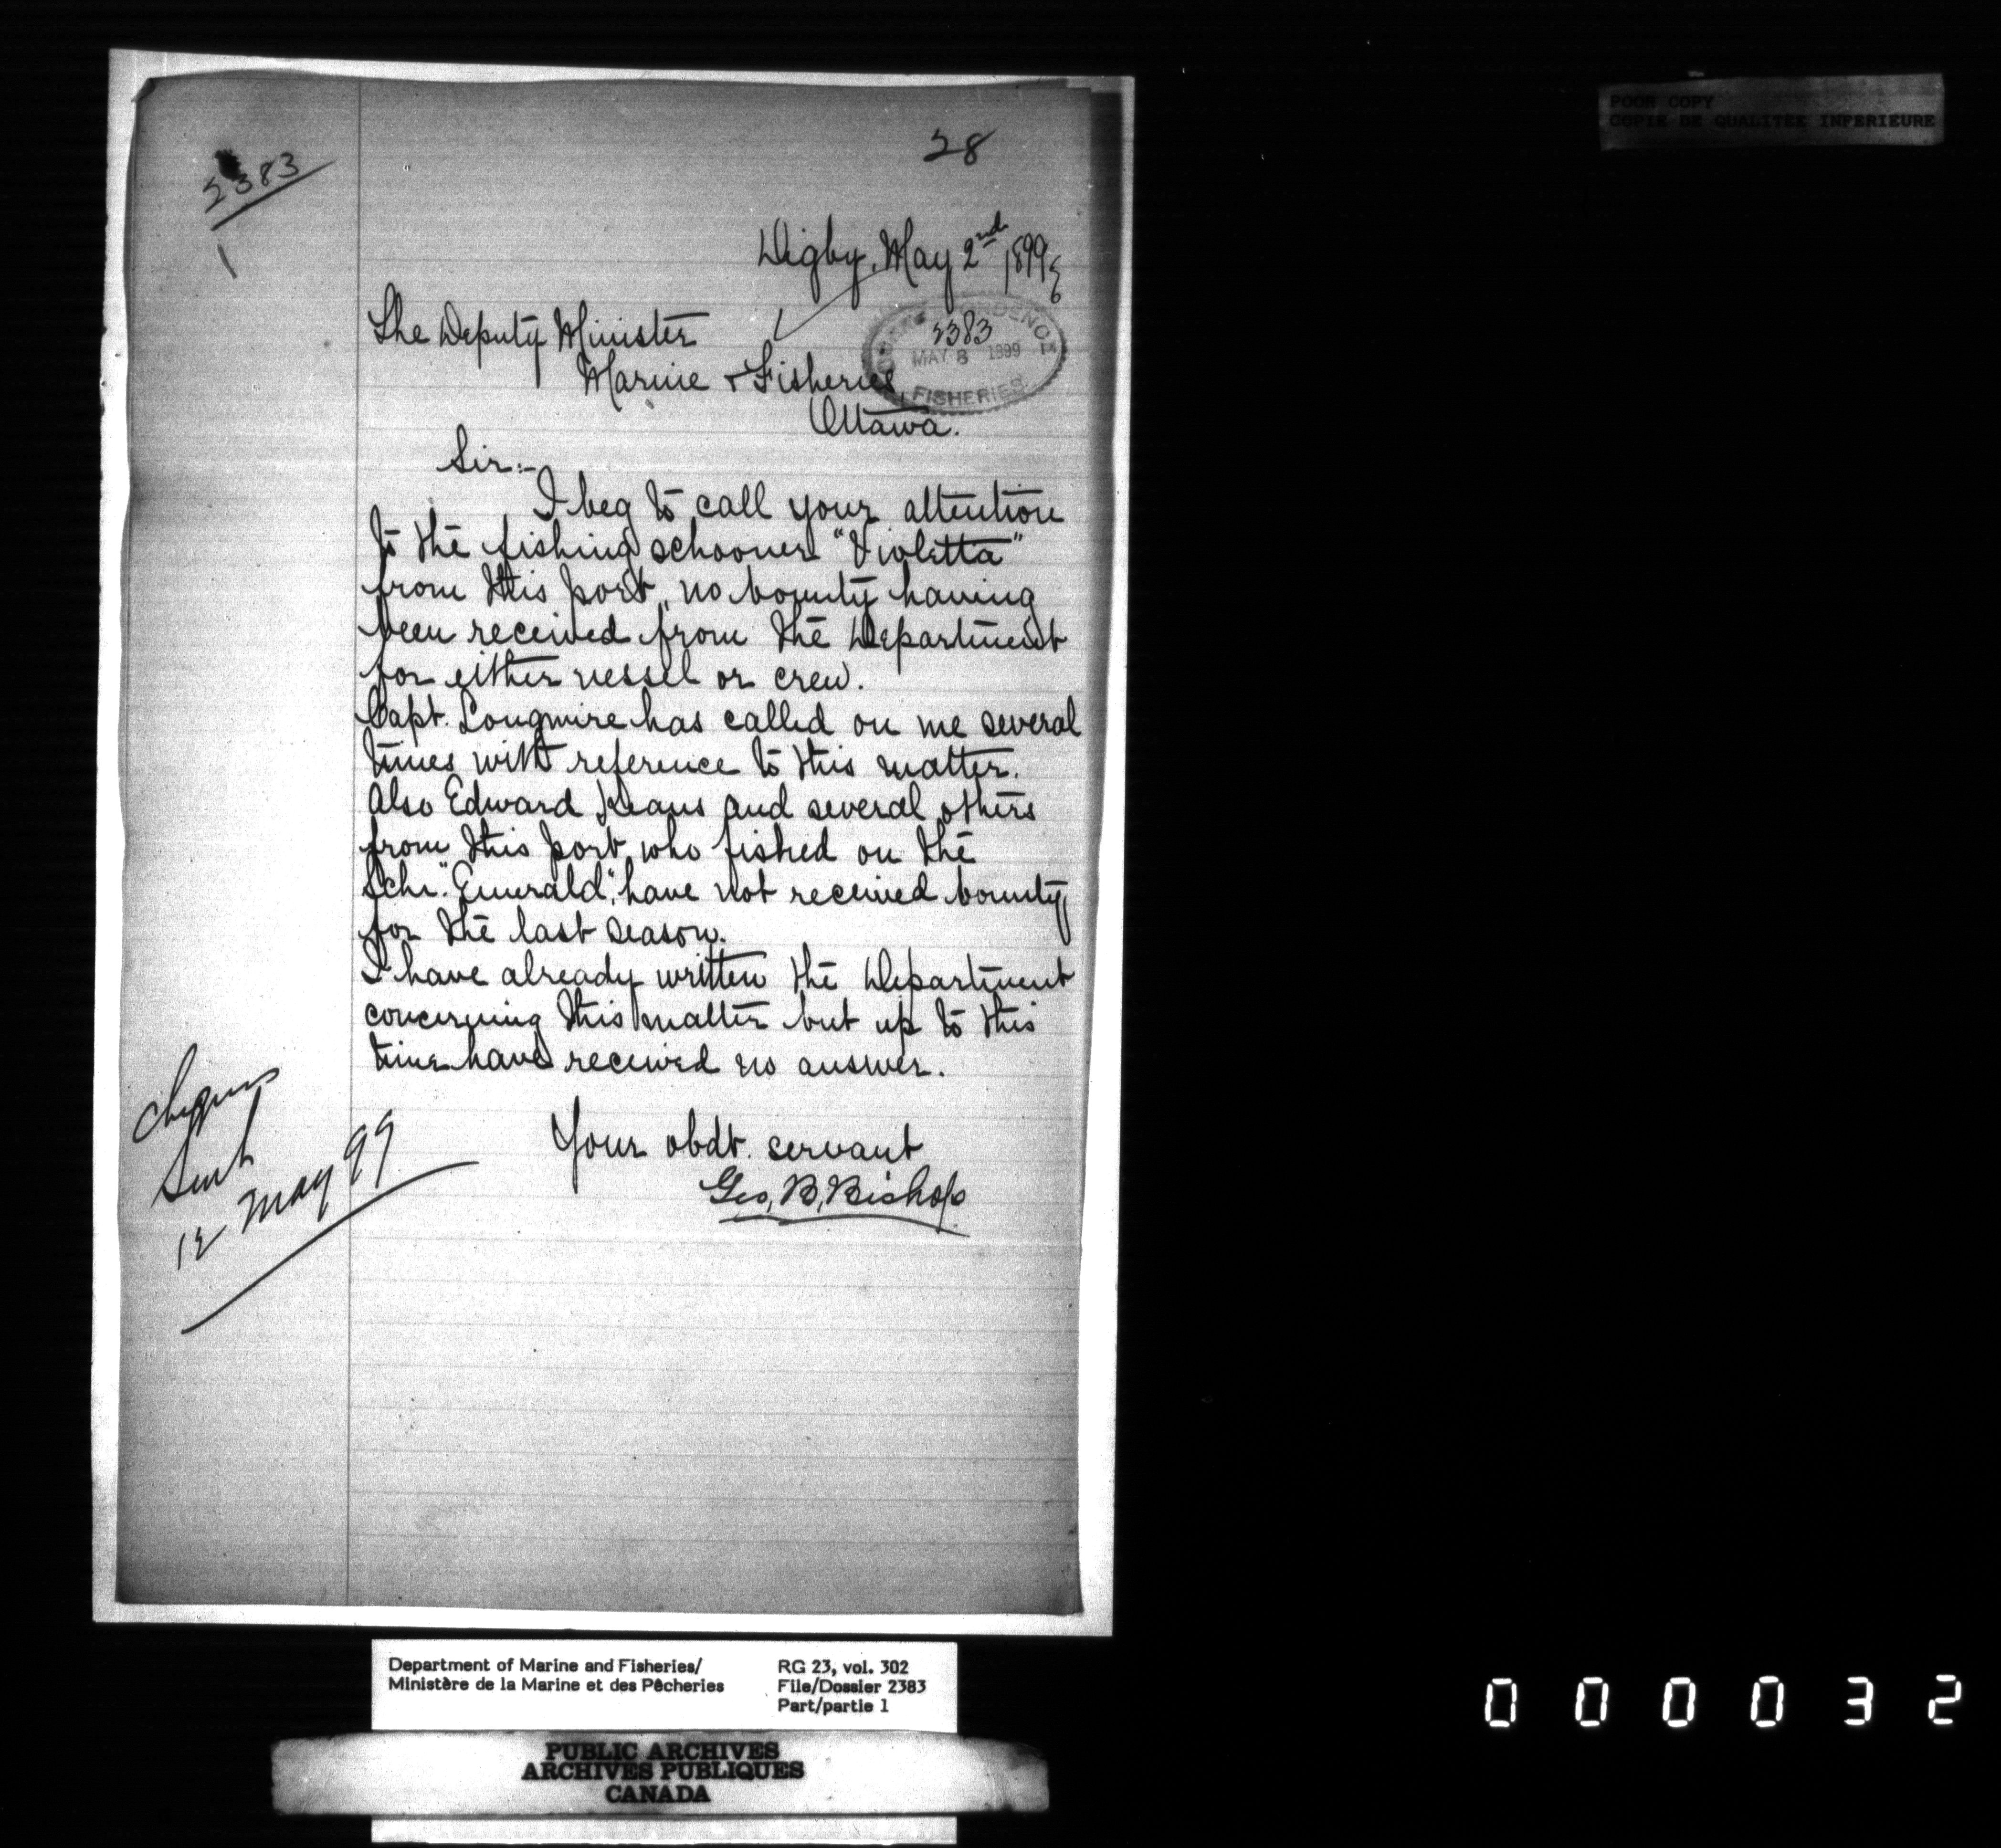 POOR COPY
COPIE DE QUALITEE INFERIEURE
28
2383
1
Digby, May 2nd 1899
The Deputy Minister
Marine & Fisheries
Ottawa.
CORRESPONDENCE
2383
MAY 8 1899
FISHERIES
Sir:-
I beg to call your attention
to the fishing schooner "Violetta"
from this port, no bounty having
been received from the Department
for either vessel or crew.
Capt. Longmire has called on me several
times with reference to this matter.
Also Edward Keans and several others
from this port, who fished on the
Schr. "Emerald", have not received bounty
for the last season.
I have already written the Department
concerning this matter but up to this
time have received no answer.
Your obdt. servant
Geo. B. Bishop
Cheques
sent
12 May 99
Department of Marine and Fisheries/
Ministère de la Marine et des Pêcheries
RG 23, vol. 302
File/Dossier 2383
Part/partie 1
PUBLIC ARCHIVES
ARCHIVES PUBLIQUES
CANADA
000032